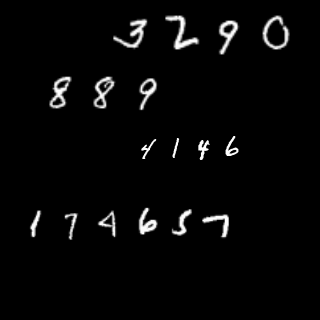 3290
889
4146
174657